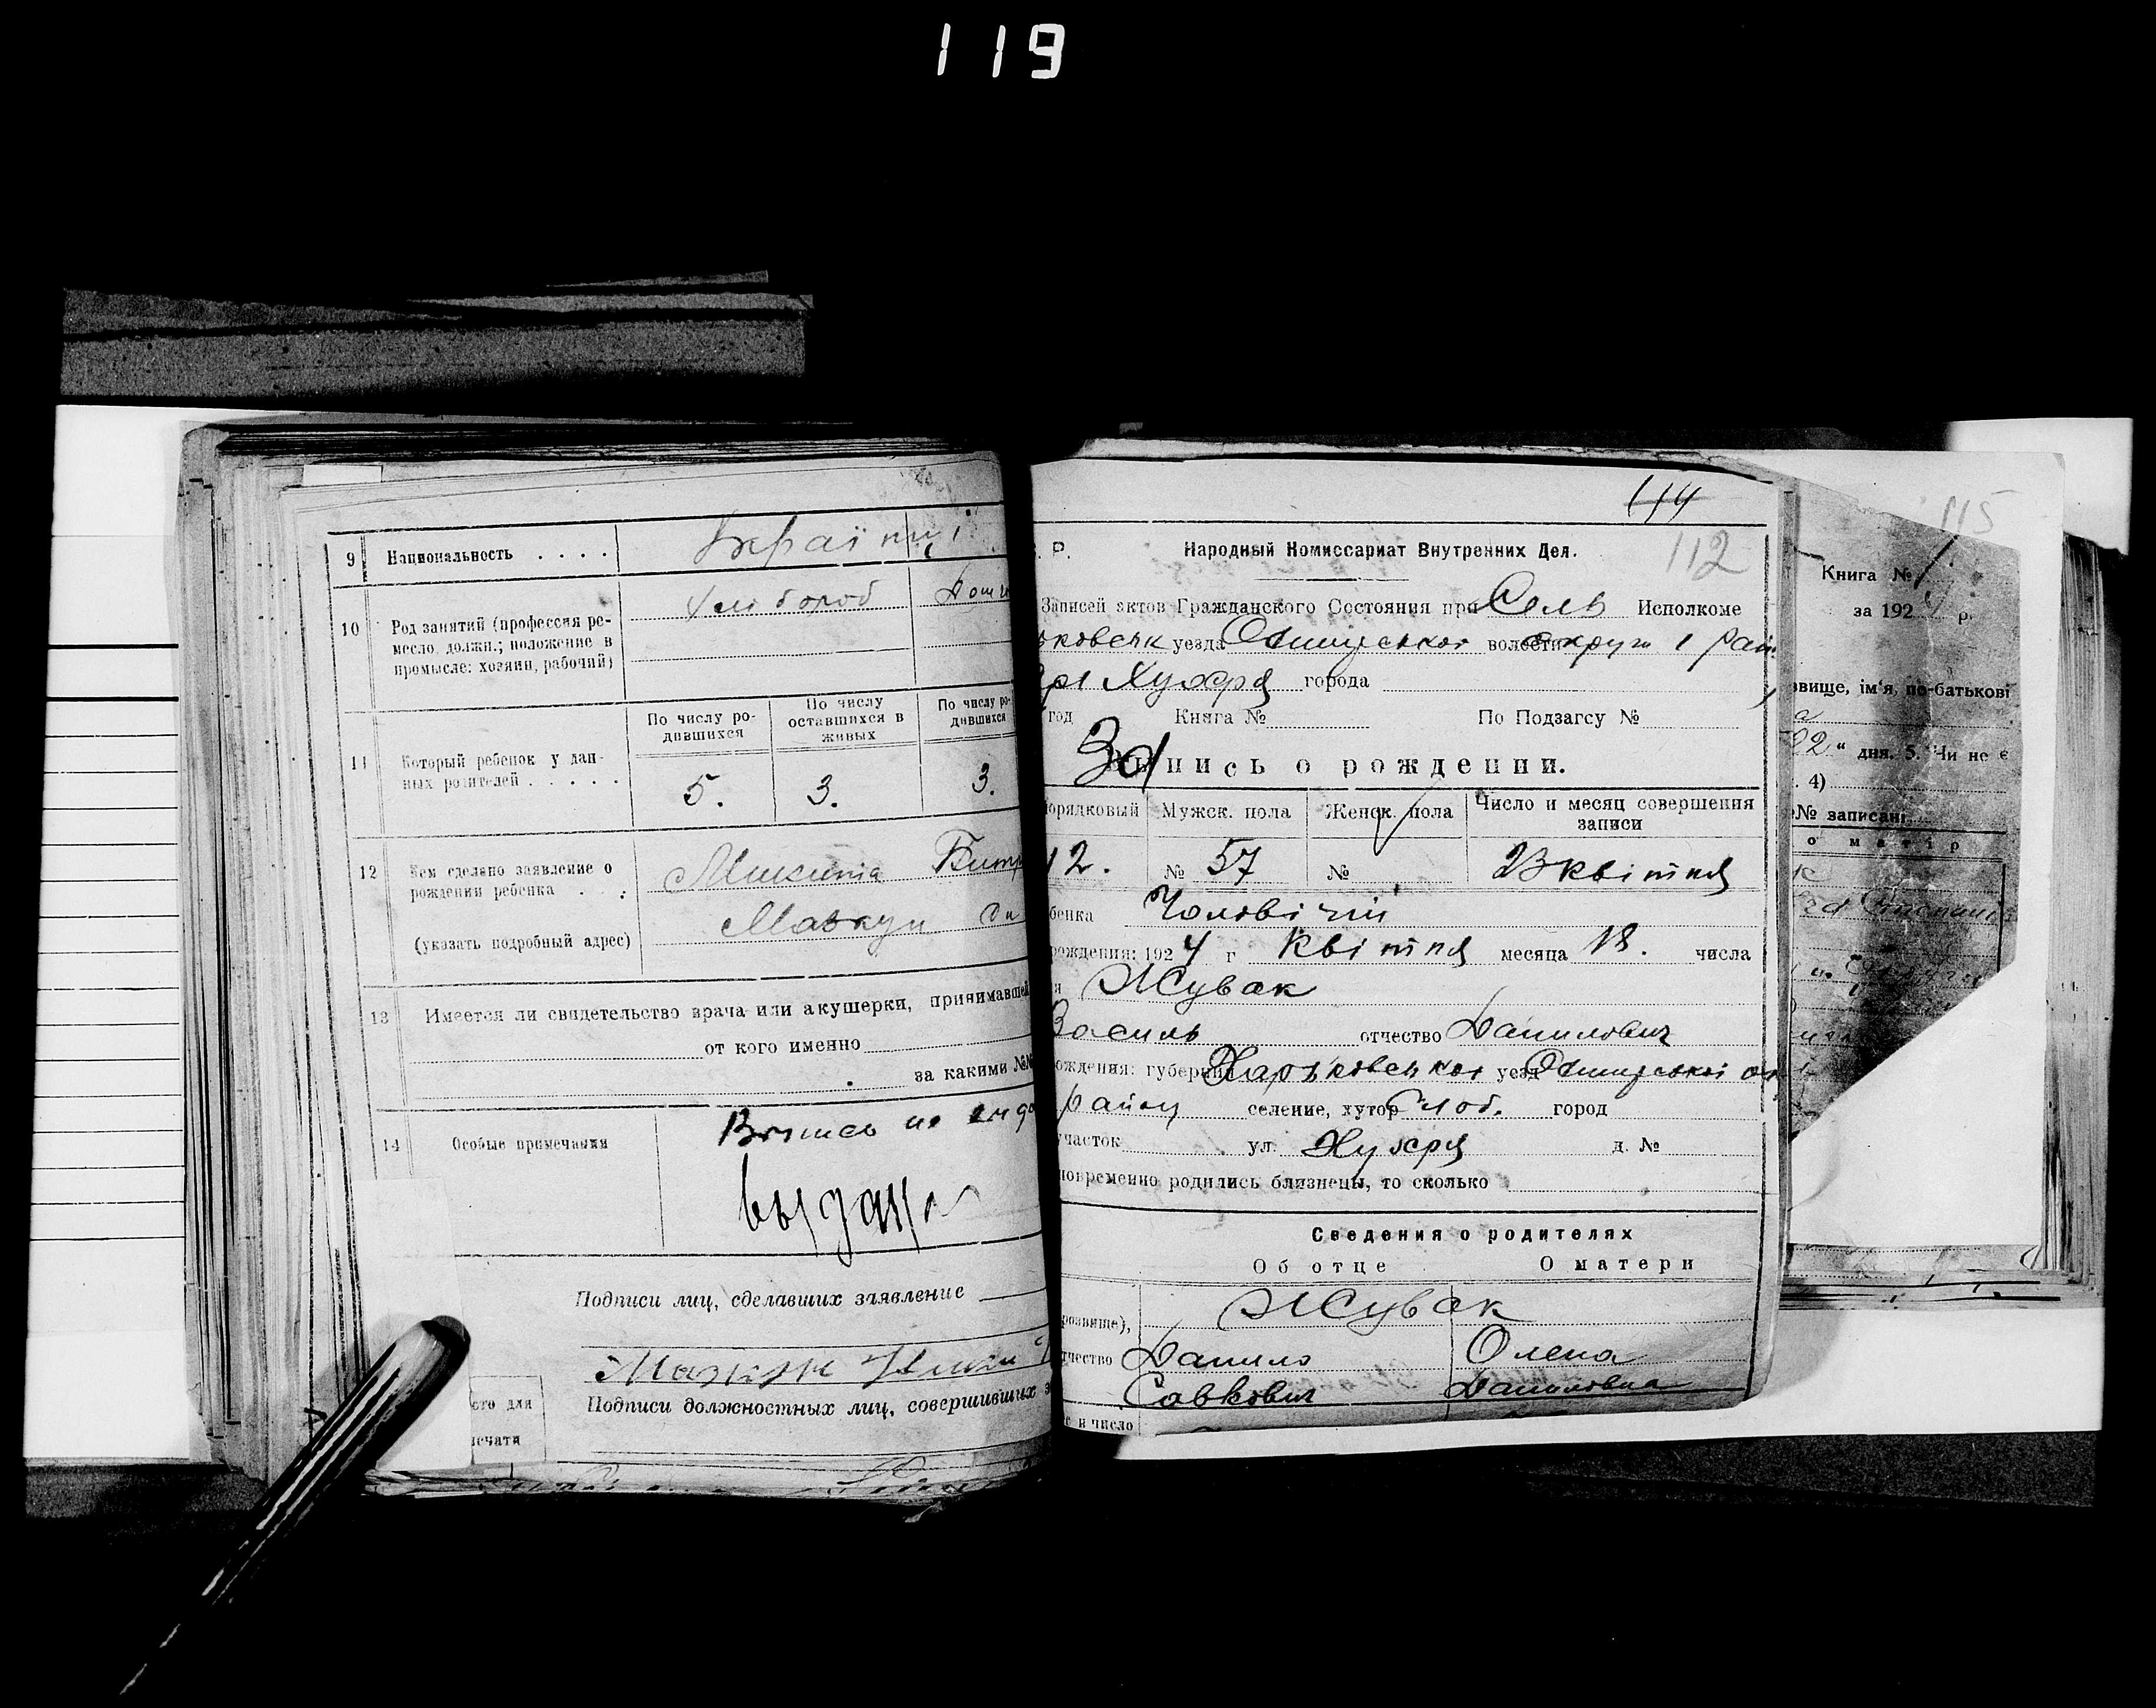 119
9 Национальность . . . . Україnці
10 Род занятий (профессия ре-
месло, должн.; положение в
промысле: хозяин, рабочий)
Хлібороб
11 Который ребенок у дан-
ных родителей . . . . .
По числу ро-
дившихся
По числу
оставшихся в
живых
По числу ро-
дившихся
5. 3. 3.
12 Кем сделано заявление о
рождении ребенка . . :
(указать подробный адрес)
Микита
13 Имеется ли свидетельство врача или акушерки, принимавшей
от кого именно
за какими №№
14 Особые примечания
Подписи лиц, сделавших заявление
Подписи должностных лиц, совершивших
сто для
печати
114
112
. Р. Народный Комиссариат Внутренних Дел.
Записей актов Гражданского Состояния при Сель Исполкоме
ьковськ уезда Охтирської волости округи 1 рай.
Хухря города
год Книга № По Подзагсу №
Запись о рождении.
орядковый Мужск. пола Женск. пола Число и месяц совершения
записи
12. № 57 № 23 квітня
бенка Чоловічий
рождения: 1924 г Квітня месяца 18. числа
я Жувак
Василь отчество Данилович
ождения: губерния Харьковської уезд Охтирської
район селение, хутор Слоб. город
участок ул. Хухря д. №
новременно родились близнецы, то сколько
Сведения о родителях
Об отце О матери
розвище), Жувак
тчество Данило Олена
Савкович Даниловна
с и число
115
Книга №
за 192 р.
звище, ім'я, по-батькові
22" дня. 5. Чи не є
. 4)
№ записані
о матір